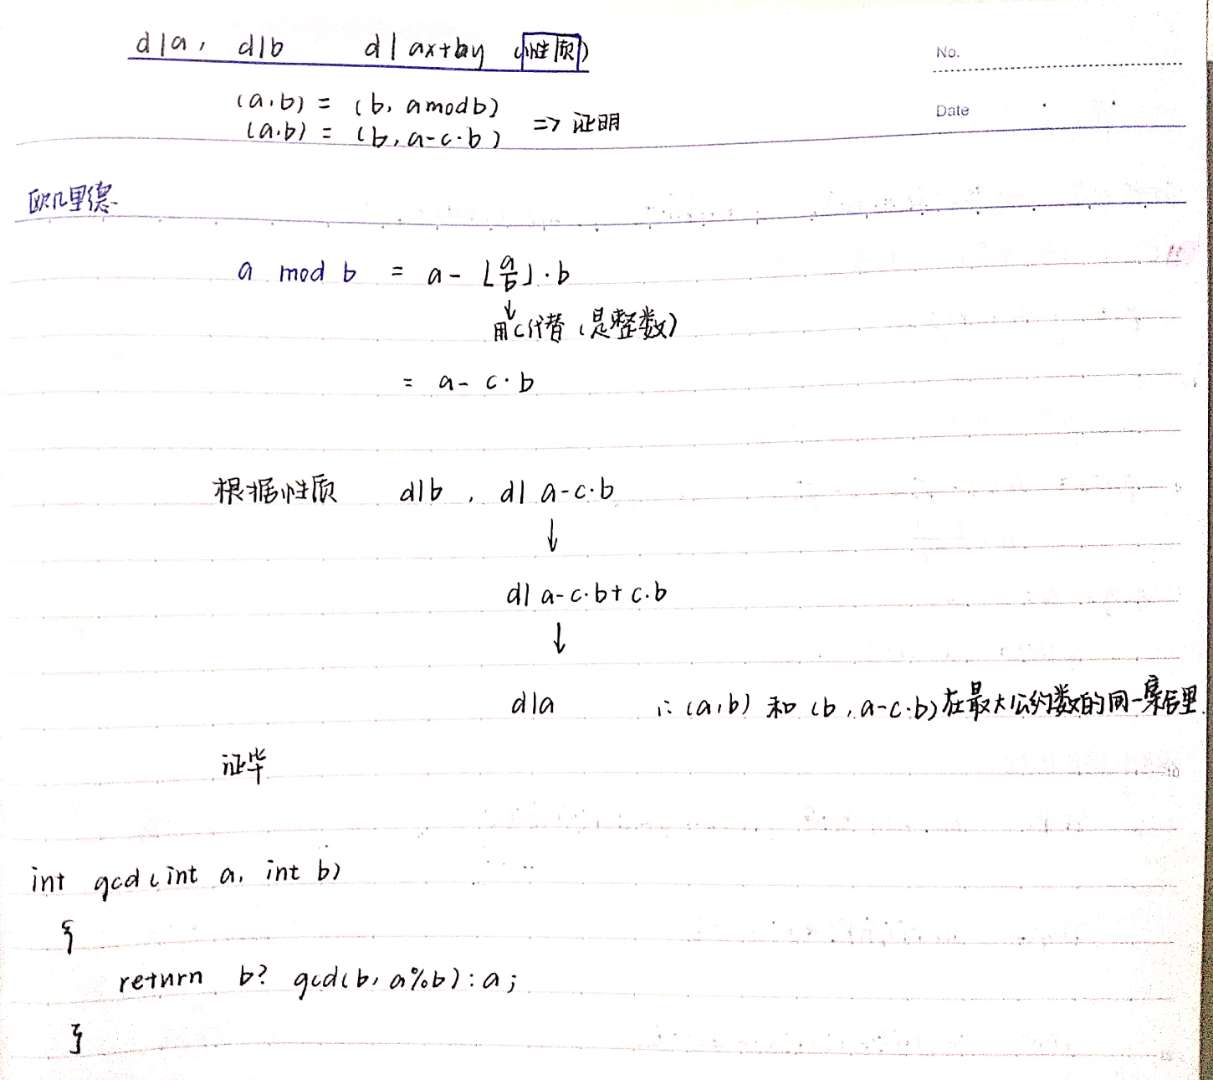 d|a, d|b d|ax+by (性质)
No.
(a,b) = (b, a mod b)
Date
(a,b) = (b, a-c·b) => 证明
欧几里德
a mod b = a - ⌊a/b⌋·b
↓
用c代替 (是整数)
= a - c·b
根据性质 d|b , d| a-c·b
↓
d| a-c·b+c·b
↓
d|a ∵ (a,b) 和 (b, a-c·b)在最大公约数的同一集合里.
证毕
10
int gcd(int a, int b)
{
return b? gcd(b, a%b):a;
}